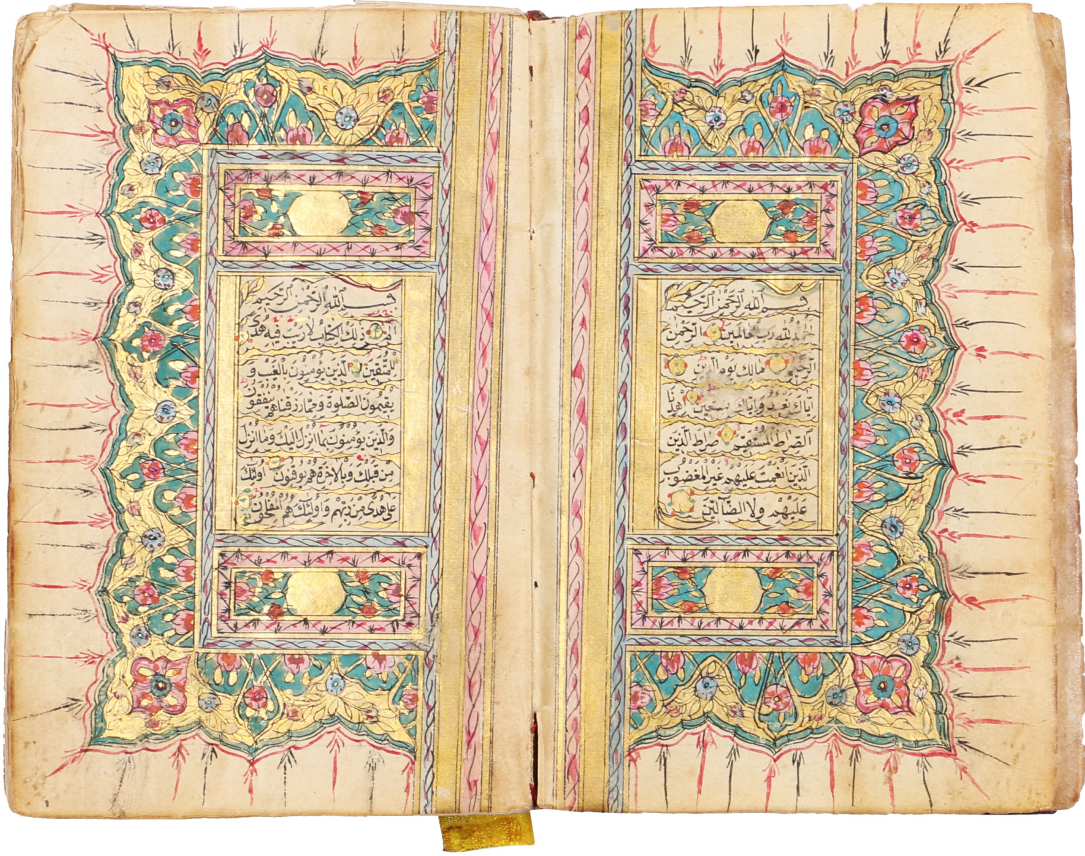 بسم الله الرحمن الرحيم
الحمد لله رب العالمين الرحمن
الرحيم مالك يوم الدين
اياك نعبد واياك نستعين اهدنا
الصراط المستقيم صراط الذين
الذين انعمت عليهم غير المغضوب
عليهم ولا الضآلين
بسم الله الرحمن الرحيم
الم ذلك الكتاب لا ريب فيه هدى
للمتقين الذين يؤمنون بالغيب و
يقيمون الصلوة ومما رزقناهم ينفقون
والذين يؤمنون بما انزل اليك وما انزل
من قبلك وبالاخرة هم يوقنون اولئك
على هدى من ربهم واولئك هم المفلحون